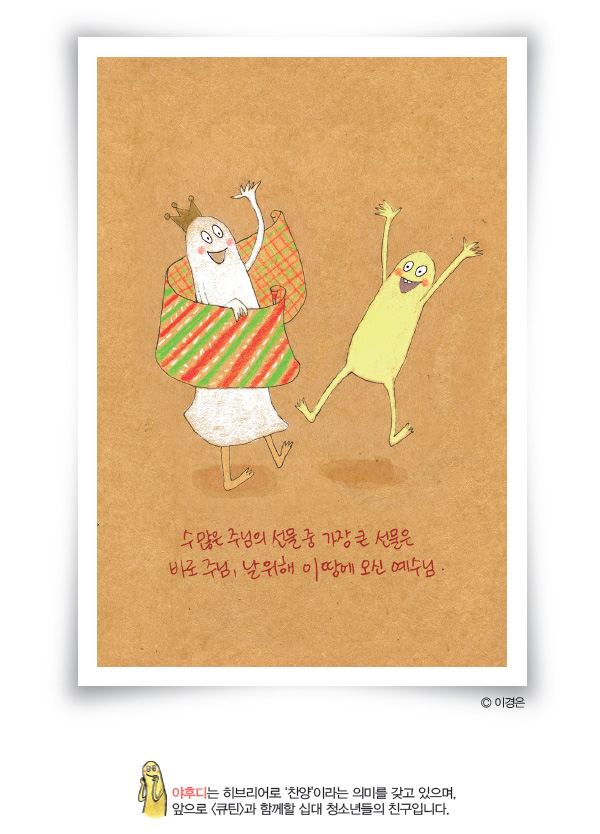 수 많은 주님의 선물 중 가장 큰 선물은
바로 주님, 날 위해 이 땅에 오신 예수님.
© 이경은
야후디는 히브리어로 '찬양'이라는 의미를 갖고 있으며,
앞으로 <큐틴>과 함께할 십대 청소년들의 친구입니다.